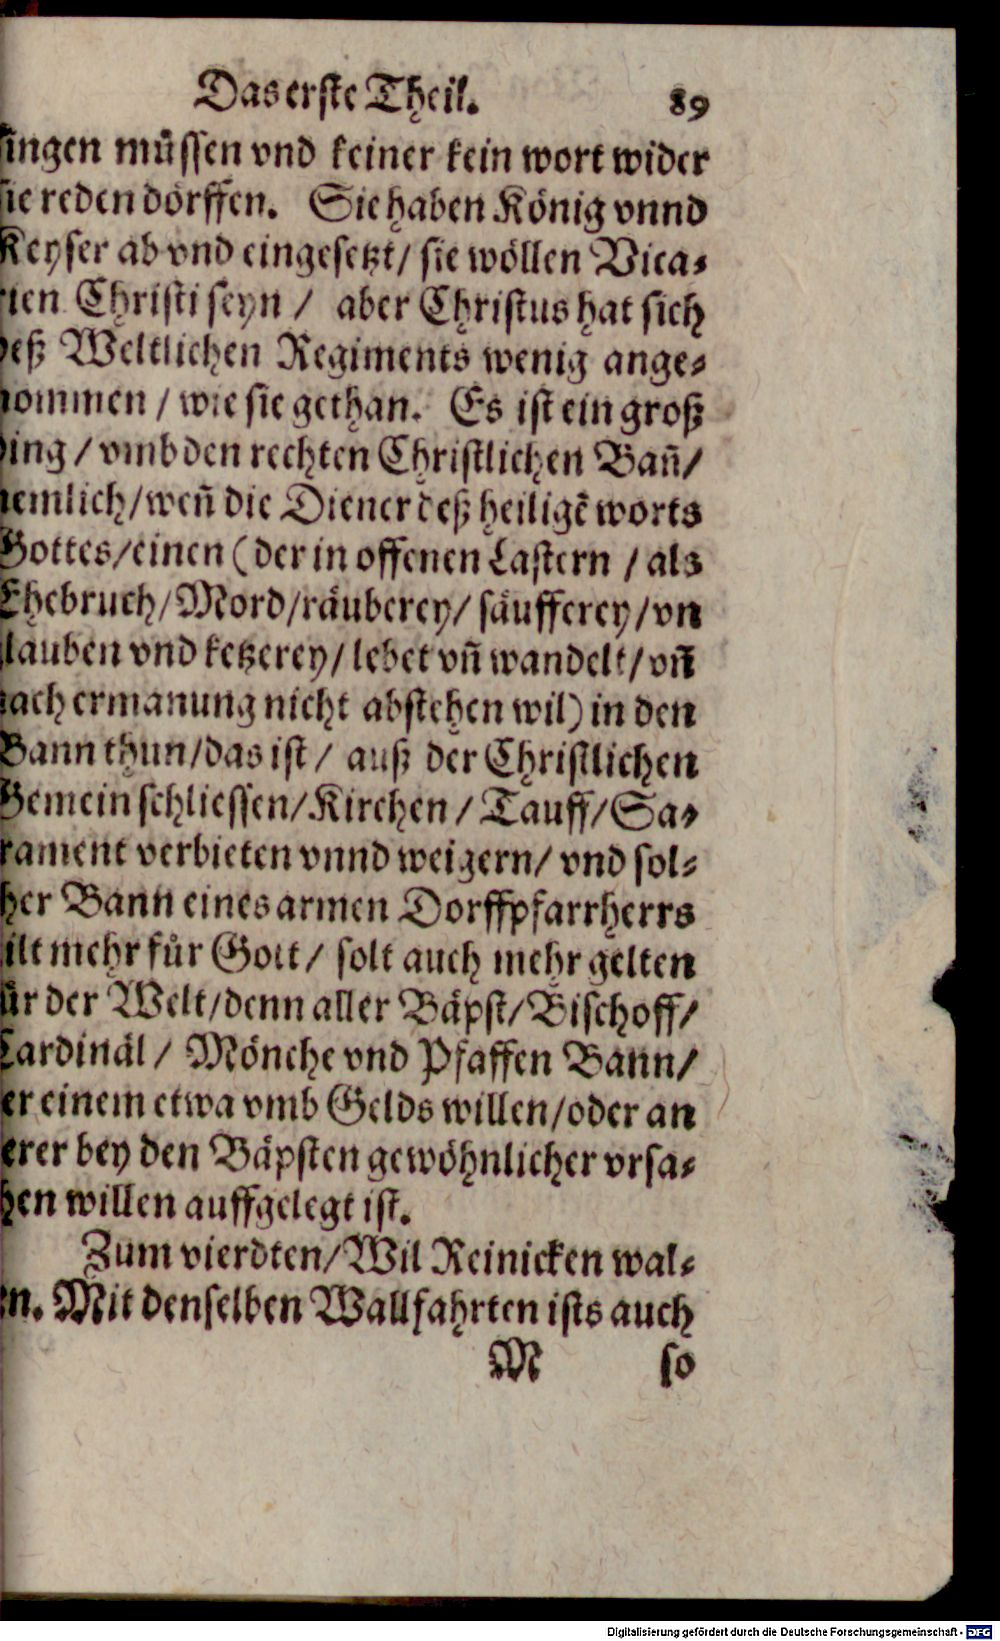 Das erste Theil. 89
singen müssen vnd keiner kein wort wider
sie reden dörffen. Sie haben König vnnd
Keyser ab vnd eingesetzt/ sie wöllen Vica-
rien Christi seyn / aber Christus hat sich
deß Weltlichen Regiments wenig ange-
nommen / wie sie gethan. Es ist ein groß
ding / vmb den rechten Christlichen Bañ/
nemlich/ weñ die Diener deß heiligẽ worts
Gottes/ einen (der in offenen Lastern / als
Ehebruch/ Mord/ räuberey/ säufferey/ vn
lauben vnd ketzerey/ lebet vñ wandelt/ vñ
nach ermanung nicht abstehen wil) in den
Bann thun/ das ist / auß der Christlichen
Gemein schliessen/ Kirchen / Tauff/ Sa-
rament verbieten vnnd weigern/ vnd sol-
her Bann eines armen Dorffpfarrherrs
ilt mehr für Gott/ solt auch mehr gelten
ür der Welt/ denn aller Bäpst/ Bischoff/
Cardinäl / Mönche vnd Pfaffen Bann/
er einem etwa vmb Gelds willen/ oder an
erer bey den Bäpsten gewöhnlicher vrsa-
hen willen auffgelegt ist.
Zum vierdten/ Wil Reinicken wal-
n. Mit denselben Wallfahrten ists auch
M so
Digitalisierung gefördert durch die Deutsche Forschungsgemeinschaft - DFG